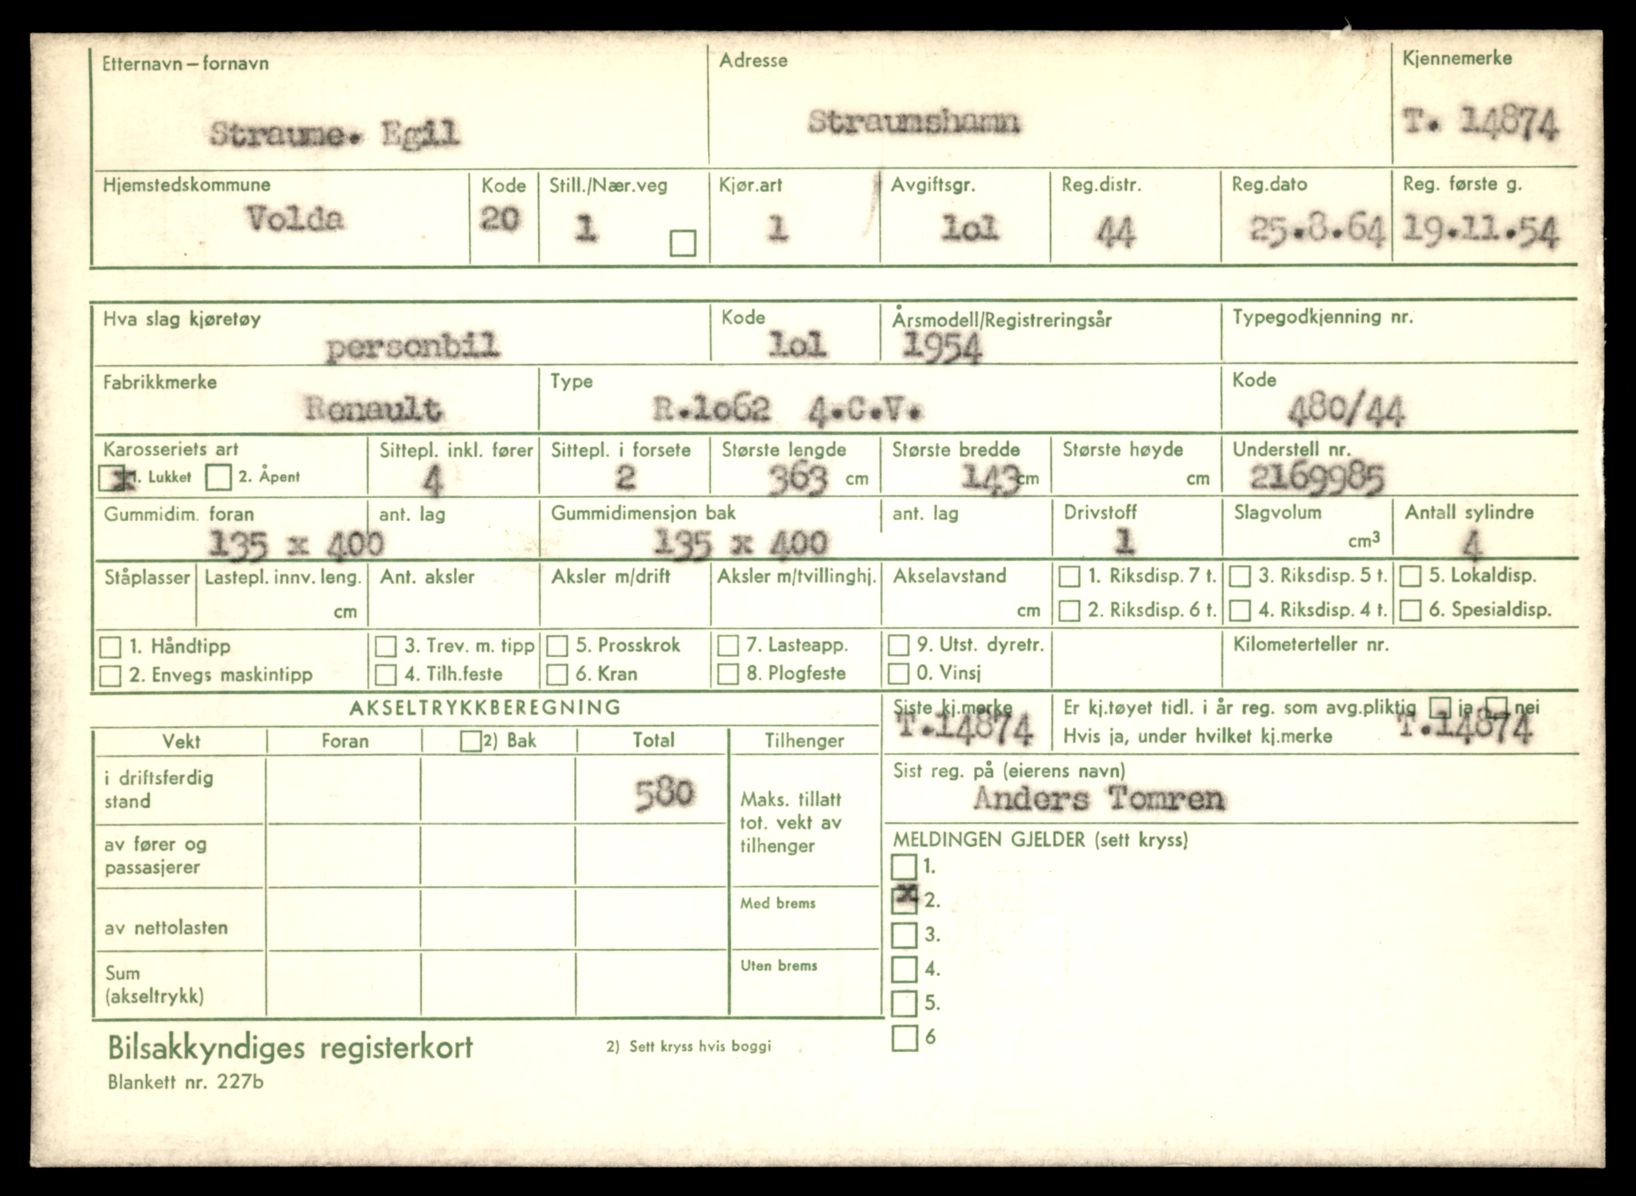 Etternavn – fornavn Adresse Kjennemerke
Straume. Egil Straumshamn T. 14874
Hjemstedskommune Kode Still./Nær.veg Kjør.art Avgiftsgr. Reg.distr. Reg.dato Reg. første g.
Volda 20 1 1 lol 44 25.8.64 19.11.54
Hva slag kjøretøy Kode Årsmodell/Registreringsår Typegodkjenning nr.
personbil lol 1954
Fabrikkmerke Type Kode
Renault R.lo62 4.C.V. 480/44
Karosseriets art Sittepl. inkl. fører Sittepl. i forsete Største lengde Største bredde Største høyde Understell nr.
x 1. Lukket 2. Åpent 4 2 363 cm 143 cm cm 2169985
Gummidim. foran ant. lag Gummidimensjon bak ant. lag Drivstoff Slagvolum Antall sylindre
135 x 400 135 x 400 1 cm3 4
Ståplasser Lastepl. innv. leng. Ant. aksler Aksler m/drift Aksler m/tvillinghj. Akselavstand 1. Riksdisp. 7 t. 3. Riksdisp. 5 t. 5. Lokaldisp.
cm cm 2. Riksdisp. 6 t. 4. Riksdisp. 4 t. 6. Spesialdisp.
1. Håndtipp 3. Trev. m. tipp 5. Prosskrok 7. Lasteapp. 9. Utst. dyretr. Kilometerteller nr.
2. Envegs maskintipp 4. Tilh.feste 6. Kran 8. Plogfeste 0. Vinsj
AKSELTRYKKBEREGNING Siste kj.merke Er kj.tøyet tidl. i år reg. som avg.pliktig ja nei
T.14874 Hvis ja, under hvilket kj.merke T.14874
Vekt Foran 2) Bak Total Tilhenger
i driftsferdig stand 580
Sist reg. på (eierens navn)
Anders Tomren
Maks. tillatt tot. vekt av tilhenger
av fører og passasjerer
MELDINGEN GJELDER (sett kryss)
1.
x 2.
Med brems
av nettolasten
3.
Uten brems
4.
Sum (akseltrykk)
5.
6
Bilsakkyndiges registerkort 2) Sett kryss hvis boggi
Blankett nr. 227b